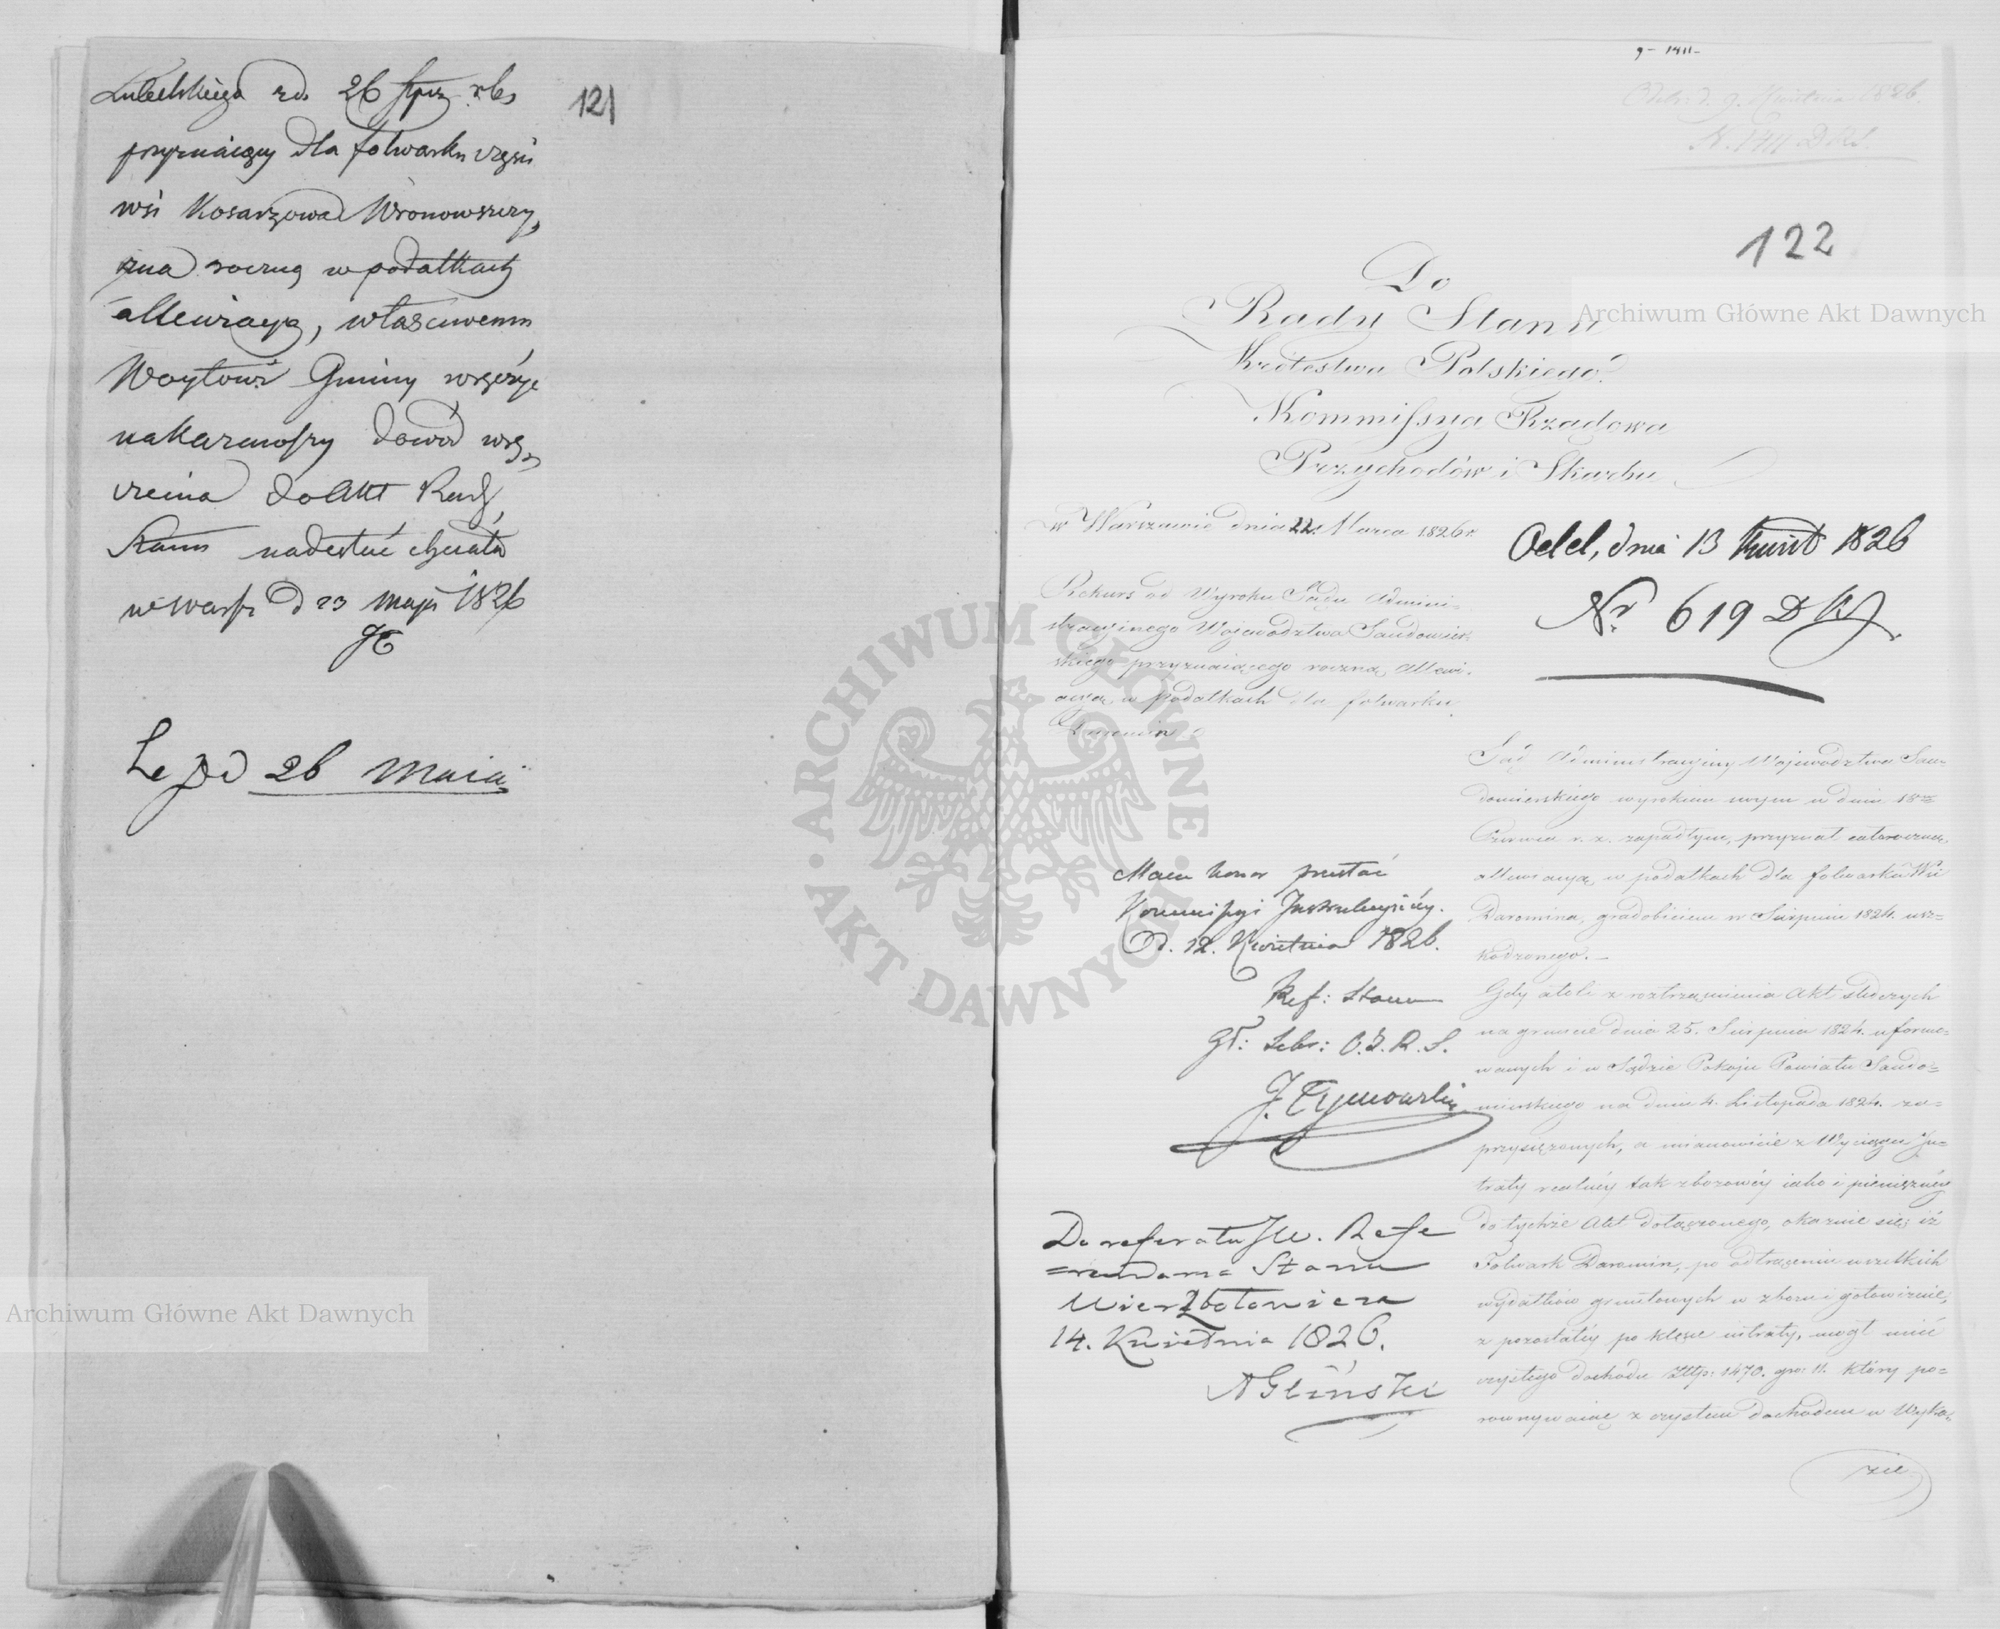 Lubelskiego z d. 26 Stycz. r. b.
przyznaiący dla folwarku części
wsi Kosarzowa Wronowszczy
zna roczną w podatkach
allewiacyą, właściwemu
Woytowi Gminy
dowód wrę
czenia do Akt Rady
Stanu nadesłać chciała
w Warsz: d 23 maja 1826
d 26 Maia
121
9 - 1411 -
Odebr. d. 9. Kwietnia 1826.
N. 1411 D.R.S.
122
Do
Rady Stanu
Królestwa Polskiego
Kommissya Rządowa
Przychodów i Skarbu
w Warszawie dnia 22. Marca 1826 r.
Odel, dnia 13 Kwiet 1826
Nr 619 D
Rekurs od Wyroku Sądu Admini-
stracyinego Województwa Sandomier-
skiego przyznaiącego roczną allewi-
acyą w podatkach dla folwarku
Daromin
Sąd Administracyiny Województwa San-
domierskiego wyrokiem swym w dniu 18
Czerwca r. z. zapadłym, przyznał całoroczną
allewiacyą w podatkach dla folwarku Wsi
Daromina, gradobiciem w Sierpniu 1824. usz-
kodzonego. _
Gdy atoli z roztrząśnienia Akt śledczych
na gruncie dnia 25. Sierpnia 1824. uformo-
wanych i w Sądzie Pokoju Powiatu Sando-
mirskiego na dniu 4. Listopada 1824. za-
przysiężonych, a mianowicie z Wyciągu In-
traty realnéy tak zbożowéy iako i pieniężnéy
do tychże Akt dołączonego, okazuie się, iż
Folwark Daromin, po odtrąceniu wszelkich
wydatków gruntowych w zbożu i gotowiznie,
z pozostałéy po klęsce intraty, mógł mieć
czystego dochodu Złtp: 1470. gro: 11. który po-
rownywaiąc z czystem dochodem w Wyka-
zie
Mam honor przesłać
Kommissyi Instrukcyinéy.
D. 12. Kwietnia 1826.
Ref: Stanu
J. Tymowski
Do referatu JW. Refe
=rendarza Stanu
Wierzbołowicza
14. Kwietnia 1826.
A Gliński
Archiwum Główne Akt Dawnych
Archiwum Główne Akt Dawnych
ARCHIWUM GŁÓWNE · AKT DAWNYCH ·